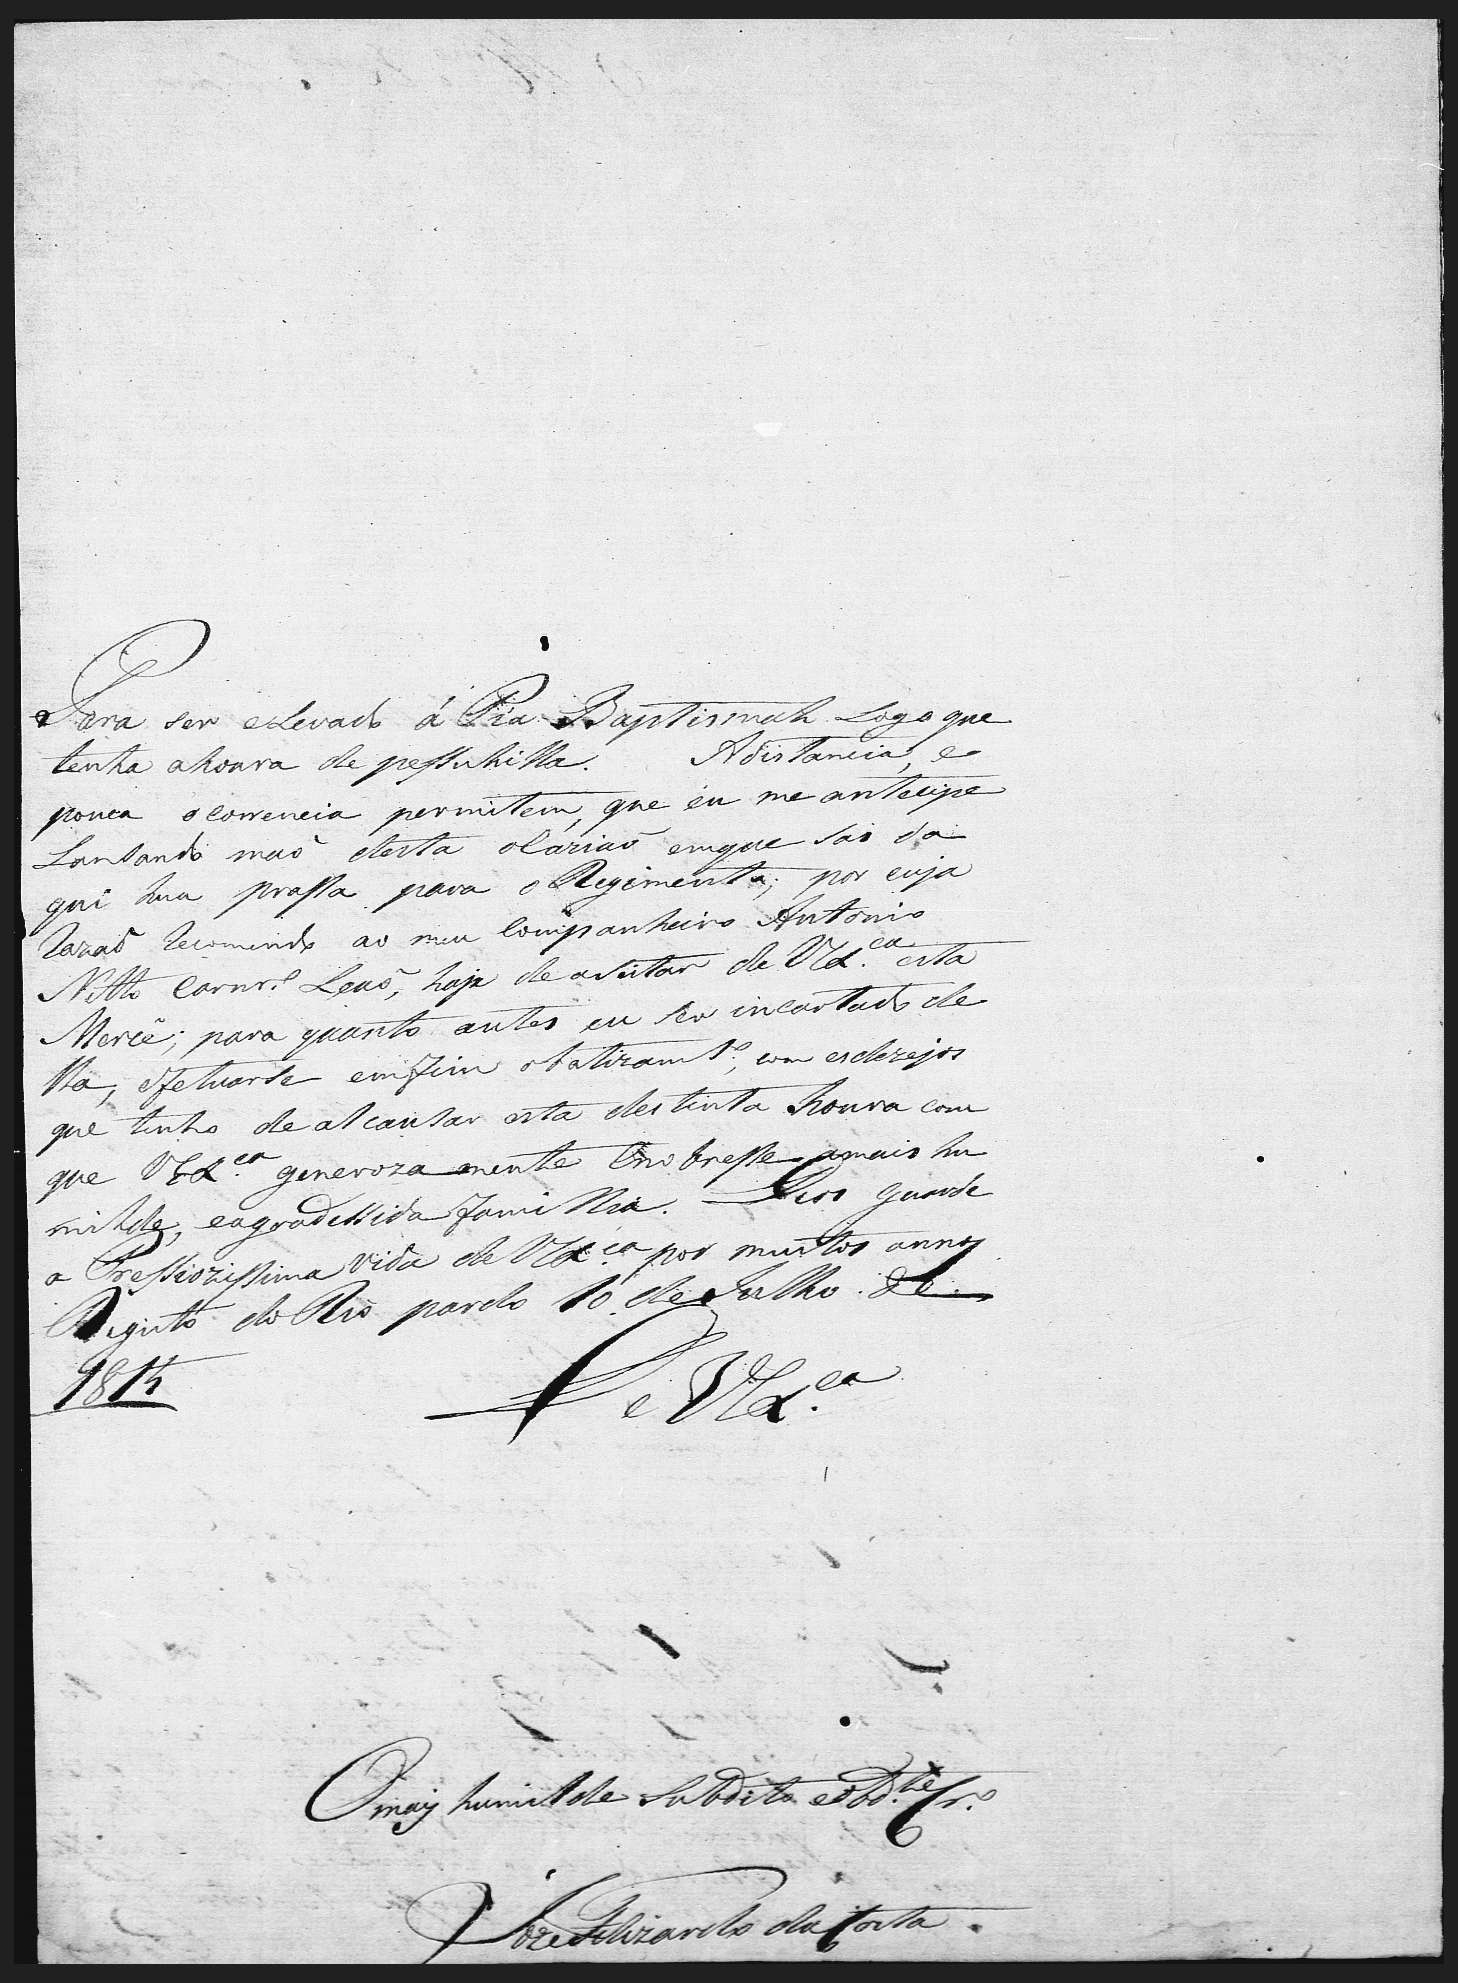 Para ser eLevado á Pia Baptismah Logo que
tenha ahonra de pessuhilla. Adistancia, e
pouca ocorrencia permitem, que eu me antecipe
Lansando maõ desta ocaziaõ emque sai da
qui hua prassa para o Regimento; por cuja
Razaõ Recomendo ao meu Companheiro Antonio
Carnr.º Leaõ, haja de asistar de VEx.ca esta
Mercê; para quanto antes eu ser incartado de
lla, efetuarse emfim obatizamt.º, com esdezejos
que tenho de alcansar esta destinta honra com
que VEx.ca generoza mente Enobresse amais hu
milde, eagradessida familia. Deos guarde
a Pressiozissima vida de VEx.ca por muitos annos
Registo do Rio pardo 10 de Julho de
1814
De VEx.ca
O maiz humilde Subdito eObd.te Cr.º
Joze Felizardo da Costa.